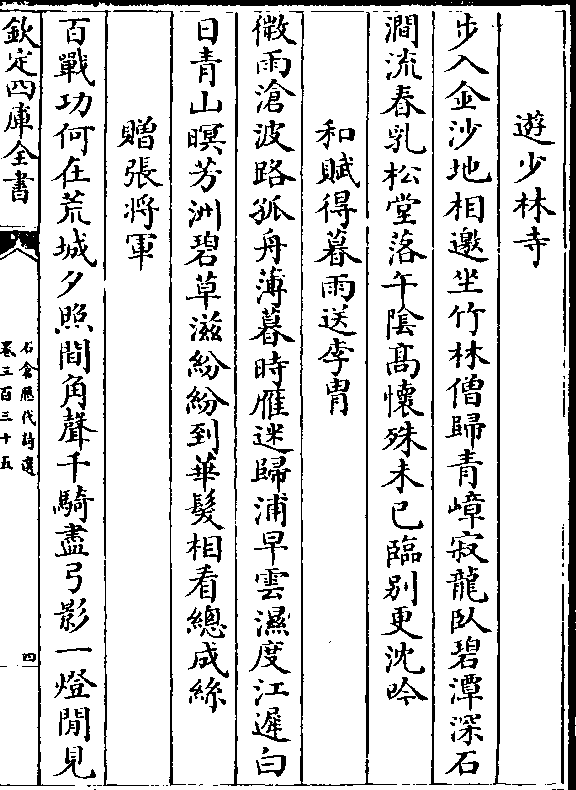 遊少林寺
步入金沙地相邀坐竹林僧歸青嶂寂龍臥碧潭深石
澗流春乳松堂落午陰髙懷殊未已臨别更沈吟
和賦得暮雨送李胄
微雨滄波路孤舟薄暮時雁迷歸浦早雲濕度江遲白
日青山暝芳洲碧草滋紛紛到華髮相看總成絲
贈張将軍
百戰功何在荒城夕照間角聲千騎盡弓影一燈閒見
欽定四庫全書
石倉歴代詩選
卷三百三十五
四